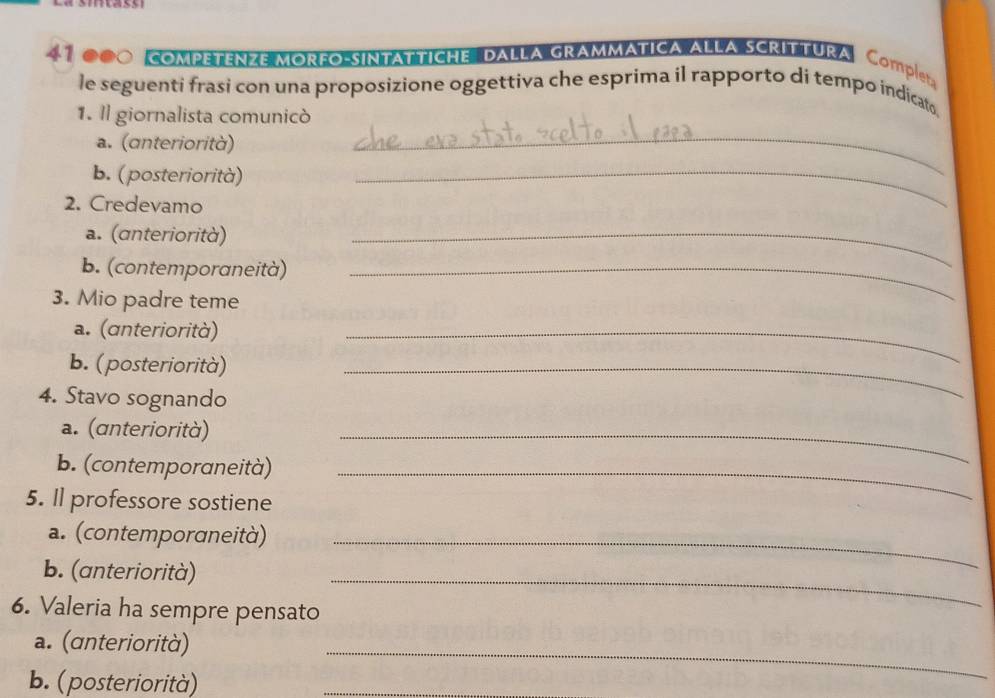 La sintassi
41 COMPETENZE MORFO-SINTATTICHE DALLA GRAMMATICA ALLA SCRITTURA Completa
le seguenti frasi con una proposizione oggettiva che esprima il rapporto di tempo indicato.
1. Il giornalista comunicò
a. (anteriorità) che era stato scelto il papa
b. (posteriorità)
2. Credevamo
a. (anteriorità)
b. (contemporaneità)
3. Mio padre teme
a. (anteriorità)
b. (posteriorità)
4. Stavo sognando
a. (anteriorità)
b. (contemporaneità)
5. Il professore sostiene
a. (contemporaneità)
b. (anteriorità)
6. Valeria ha sempre pensato
a. (anteriorità)
b. (posteriorità)